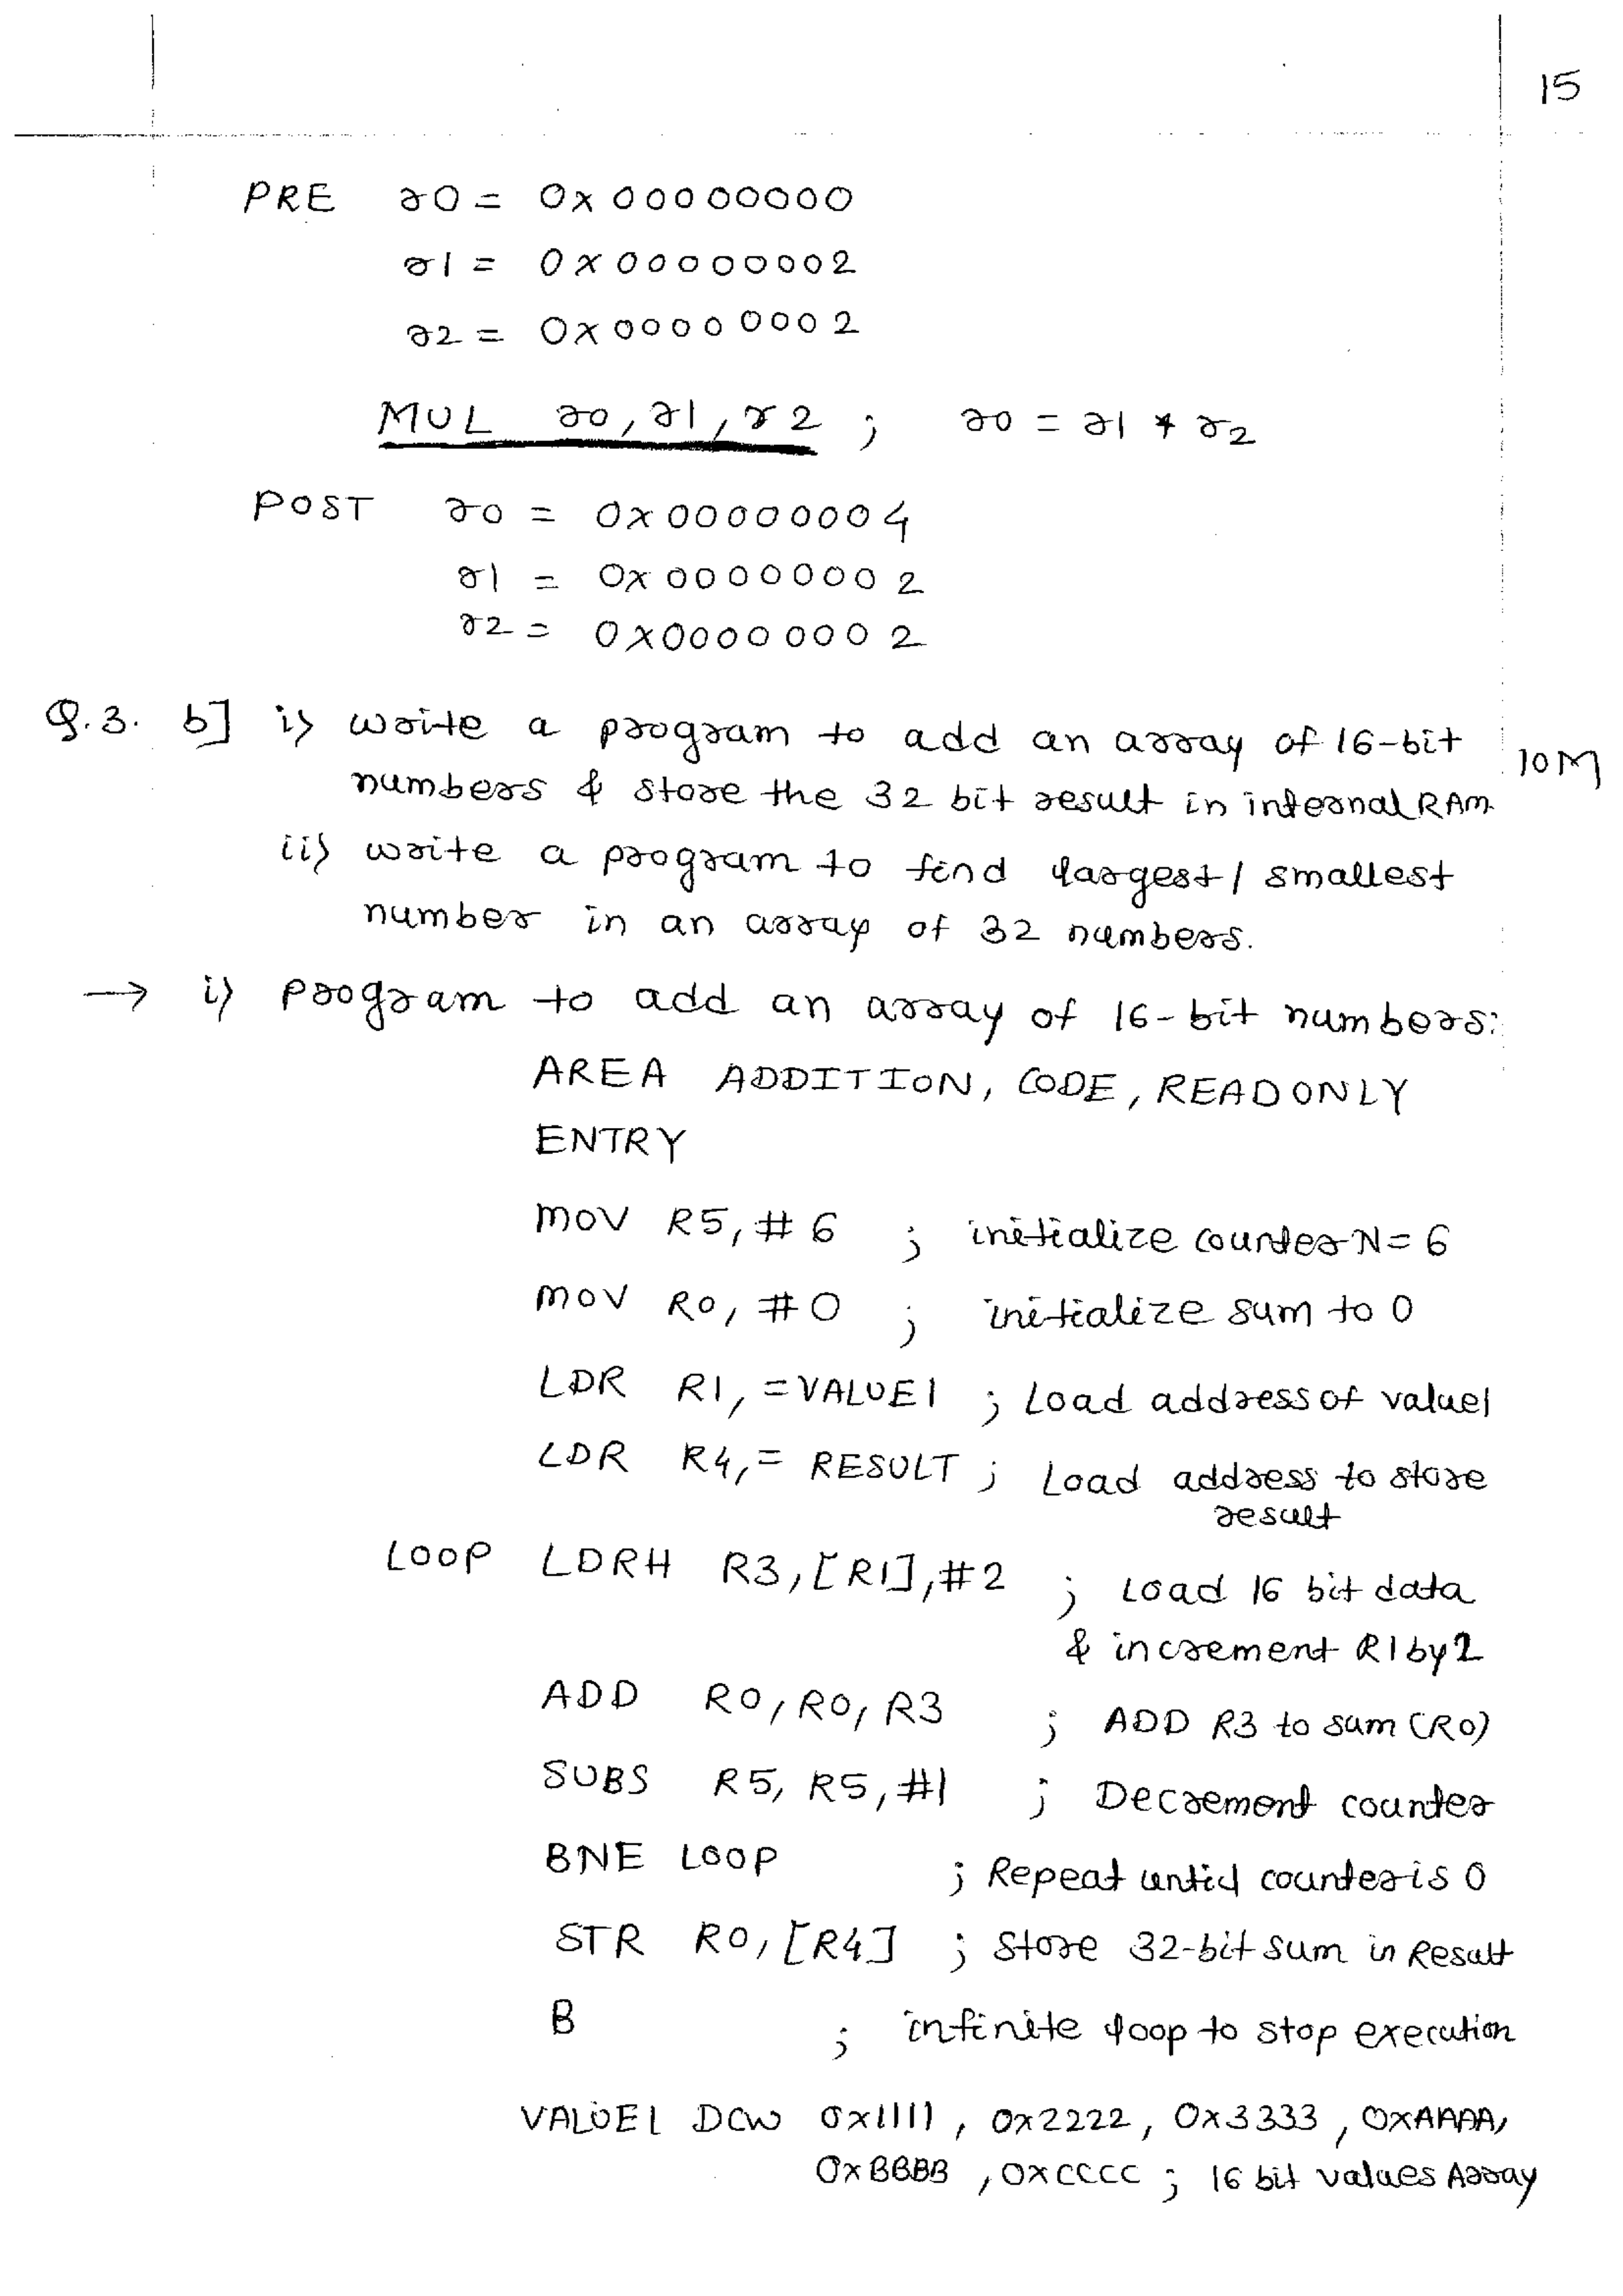 15
PRE r0 = 0x00000000
r1 = 0x00000002
r2 = 0x00000002
MUL r0, r1, r2 ; r0 = r1 * r2
POST r0 = 0x00000004
r1 = 0x00000002
r2 = 0x00000002
Q.3. b] i) write a program to add an array of 16-bit 10M
numbers & store the 32 bit result in internal RAM.
ii) write a program to find largest / smallest
number in an array of 32 numbers.
→ i) Program to add an array of 16-bit numbers:
AREA ADDITION, CODE, READONLY
ENTRY
MOV R5, #6 ; initialize counter N=6
MOV R0, #0 ; initialize sum to 0
LDR R1, =VALUE1 ; Load address of value1
LDR R4, = RESULT ; Load address to store
result
LOOP LDRH R3, [R1], #2 ; Load 16 bit data
& increment R1 by 2
ADD R0, R0, R3 ; ADD R3 to sum (R0)
SUBS R5, R5, #1 ; Decrement counter
BNE LOOP ; Repeat until counter is 0
STR R0, [R4] ; Store 32-bit sum in Result
B ; infinite loop to stop execution
VALUE1 DCW 0x1111, 0x2222, 0x3333, 0xAAAA,
0xBBBB, 0xCCCC ; 16 bit values Array